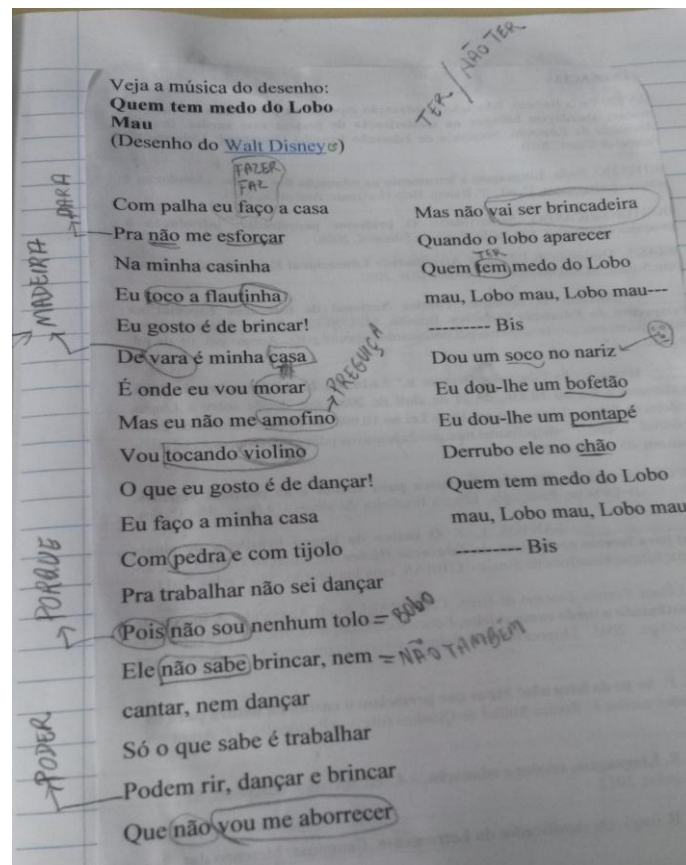 Veja a música do desenho:
Quem tem medo do Lobo
Mau
(Desenho do Walt Disney)
TER / NÃO TER
FAZER
FAZ
Com palha eu faço a casa
PARA
Pra não me esforçar
Na minha casinha
Eu toco a flautinha
Eu gosto é de brincar!
MADEIRA
De vara é minha casa
É onde eu vou morar
Mas eu não me amofino
PREGUIÇA
Vou tocando violino
O que eu gosto é de dançar!
Eu faço a minha casa
Com pedra e com tijolo
Pra trabalhar não sei dançar
PORQUE
Pois não sou nenhum tolo = BOBO
Ele não sabe brincar, nem = NÃO TAMBÉM
cantar, nem dançar
Só o que sabe é trabalhar
PODER
Podem rir, dançar e brincar
Que não vou me aborrecer
Mas não vai ser brincadeira
Quando o lobo aparecer
TER
Quem tem medo do Lobo
mau, Lobo mau, Lobo mau---
--------- Bis
Dou um soco no nariz
Eu dou-lhe um bofetão
Eu dou-lhe um pontapé
Derrubo ele no chão
Quem tem medo do Lobo
mau, Lobo mau, Lobo mau
--------- Bis